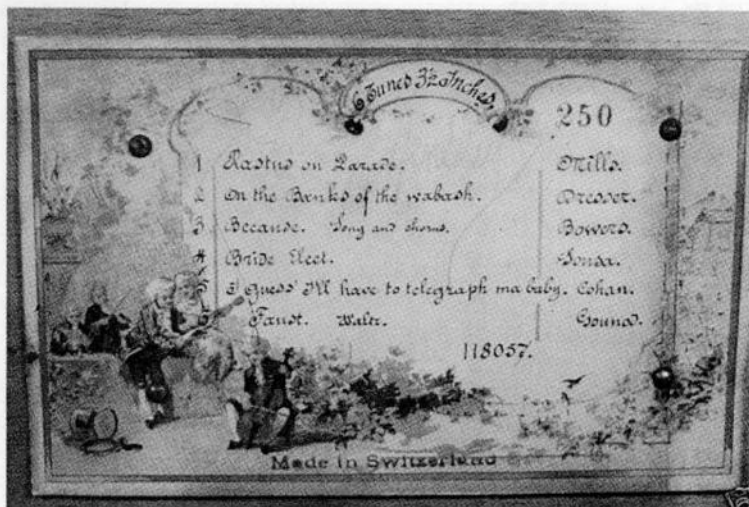 6 Tunes 3½ Inches.
250
1 Rastus on Parade. Mills.
2 On the Banks of the wabash. Dresser.
3 Because. Song and chorus. Bowers.
4 Bride Elect. Sousa.
5 I Guess I'll have to telegraph ma baby. Cohan.
6 Faust. Waltz. Gounod.
118057.
Made in Switzerland